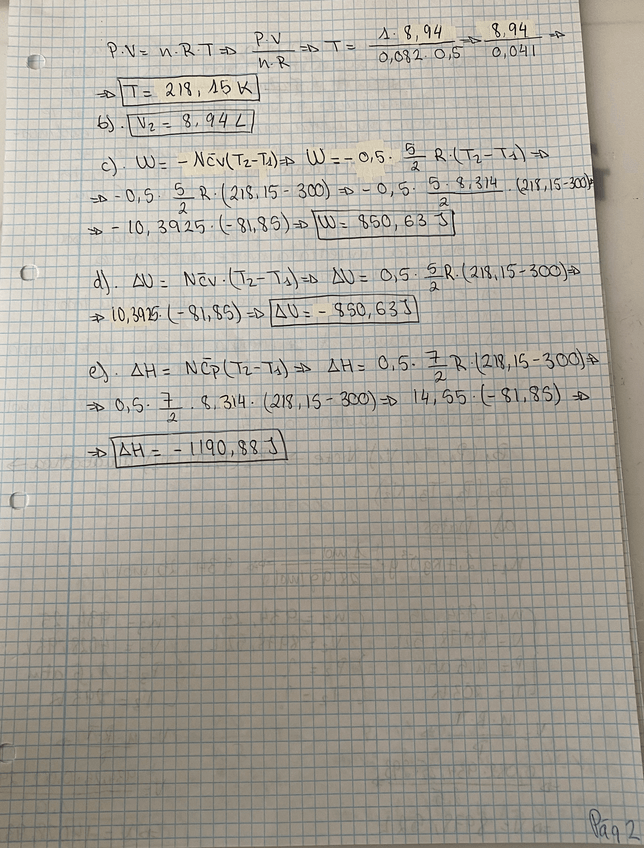 P·V = n·R·T ⇒ P·V/n·R ⇒ T = 1·8,94/0,082·0,5 ⇒ 8,94/0,041 ⇒
⇒ T = 218,15 K
b). V₂ = 8,94 L
c). W = -Nc̄v(T₂-T₁) ⇒ W = -0,5· 5/2 R·(T₂-T₁) ⇒
⇒ -0,5· 5/2 R·(218,15-300) ⇒ -0,5· 5·8,314/2 ·(218,15-300)⇒
⇒ -10,3925·(-81,85) ⇒ W = 850,63 J
d). ΔU = Nc̄v·(T₂-T₁) ⇒ ΔU = 0,5· 5/2 R·(218,15-300) ⇒
⇒ 10,3925·(-81,85) ⇒ ΔU = -850,63 J
e). ΔH = Nc̄p(T₂-T₁) ⇒ ΔH = 0,5· 7/2 R·(218,15-300) ⇒
⇒ 0,5· 7/2 ·8,314·(218,15-300) ⇒ 14,55·(-81,85) ⇒
⇒ ΔH = -1190,88 J
Pág 2